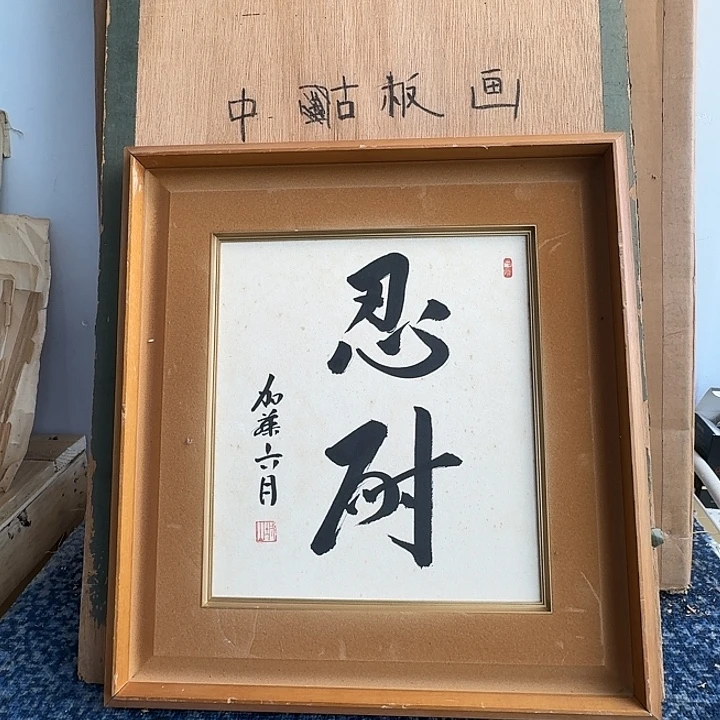 中古板画
忍耐
加藤六月